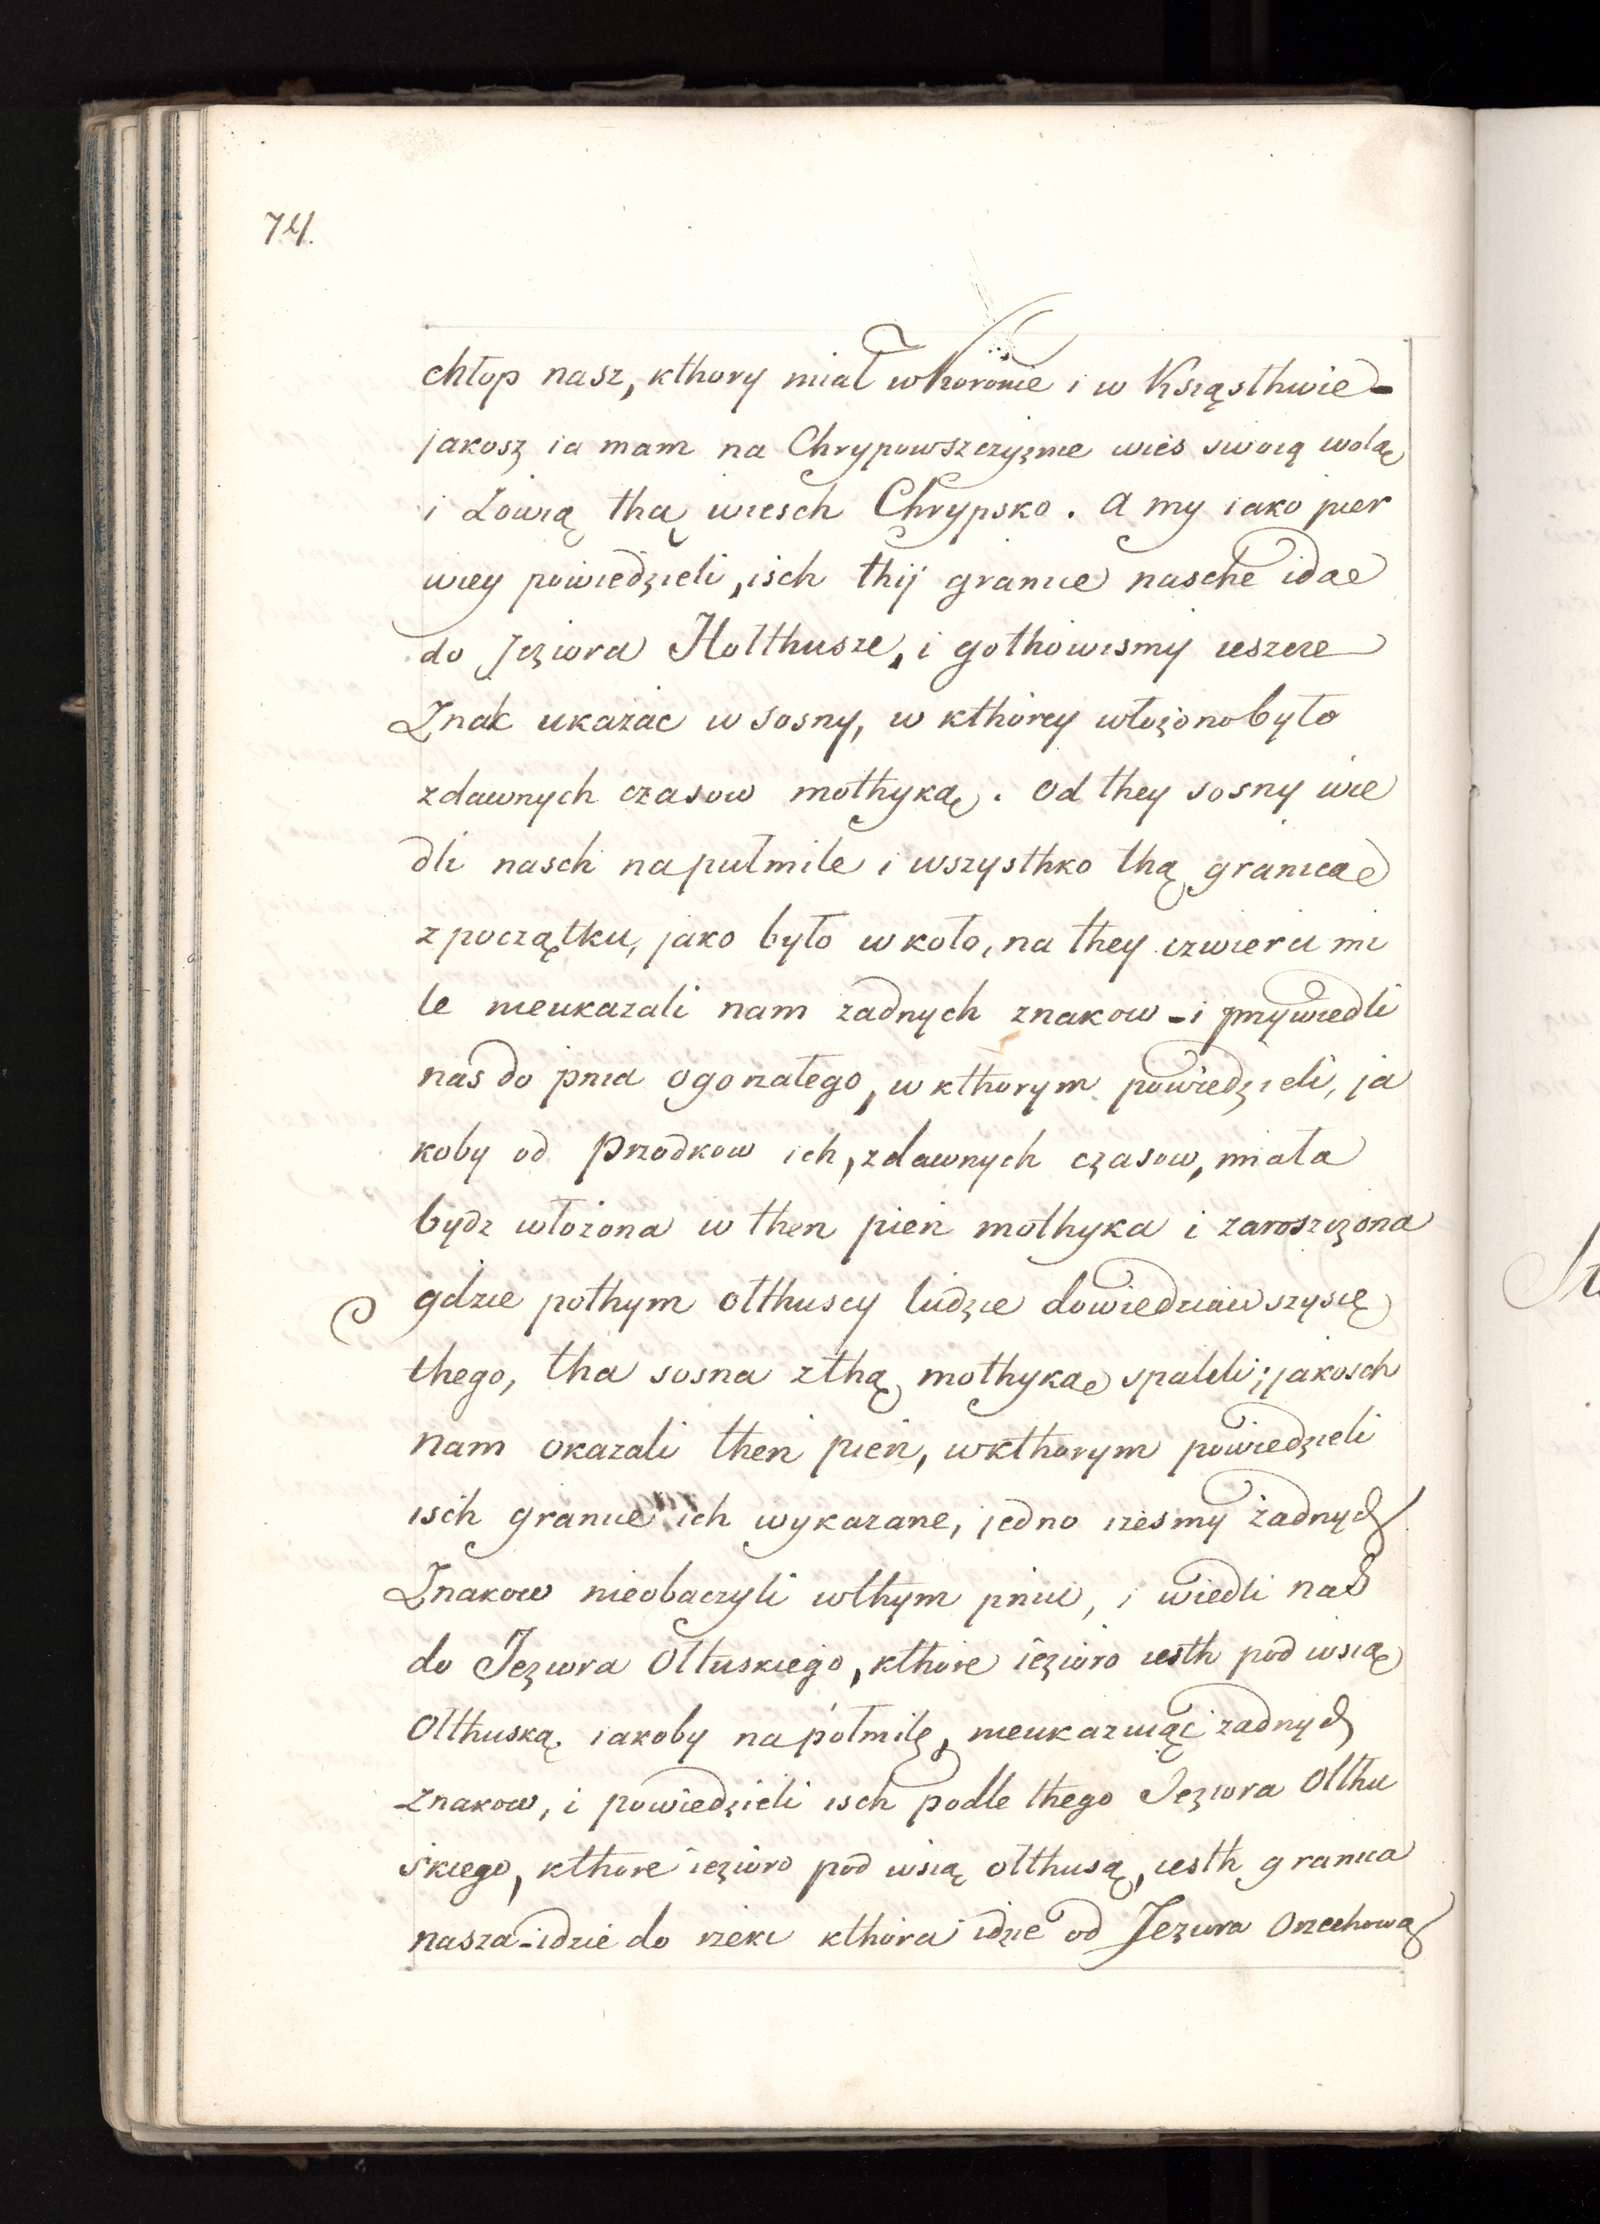 74.
chłop nasz, kthory miał w koronie i w Ksiąsthwie -
jakosz ia mam na Chrypowszczyznie wies swoią wolą
i Łowią thą wiesch Chrypsko. a my iako pier
wiey powiedzieli, isch thij granice nasche idae
do Jeziora Holthusze, i gothowismy ieszcze
Znak ukazac w sosny, w kthorey włozono było
z dawnych czasow mothykae. od they sosny wie
dli nasch na pułmile i wszysthko thą granicae
z początku, jako było w koło, na they czwierci mi
le nieukazali nam zadnych znakow - i przywiedli
nas do pnia ogorzałego, w kthorym powiedzieli, ja
koby od przodkow ich, z dawnych czasow, miała
bydz włożona w then pień mothyka i zaroszczona
gdzie pothym ołthuscy ludzie dowiedziawszysię
thego, tha sosna z thą mothykae spalili; jakosch
nam okazali then pień, w kthorym powiedzieli
isch granice ich wykazane, jedno iżesmy żadnych
Znakow nieobaczyli w thym pniu, i wiedli nas
do Jeziora Ołtuskiego, kthore iezioro iesth pod wsią
Ołthuską iakoby na połmilę, nieukazuiąc zadnych
znakow, i powiedzieli isch podle thego Jeziora Olthu
skiego, kthore iezioro pod wsią ołthusą, iesth granica
nasza - idzie do rzeki kthora idzie od Jeziora Orzechowa